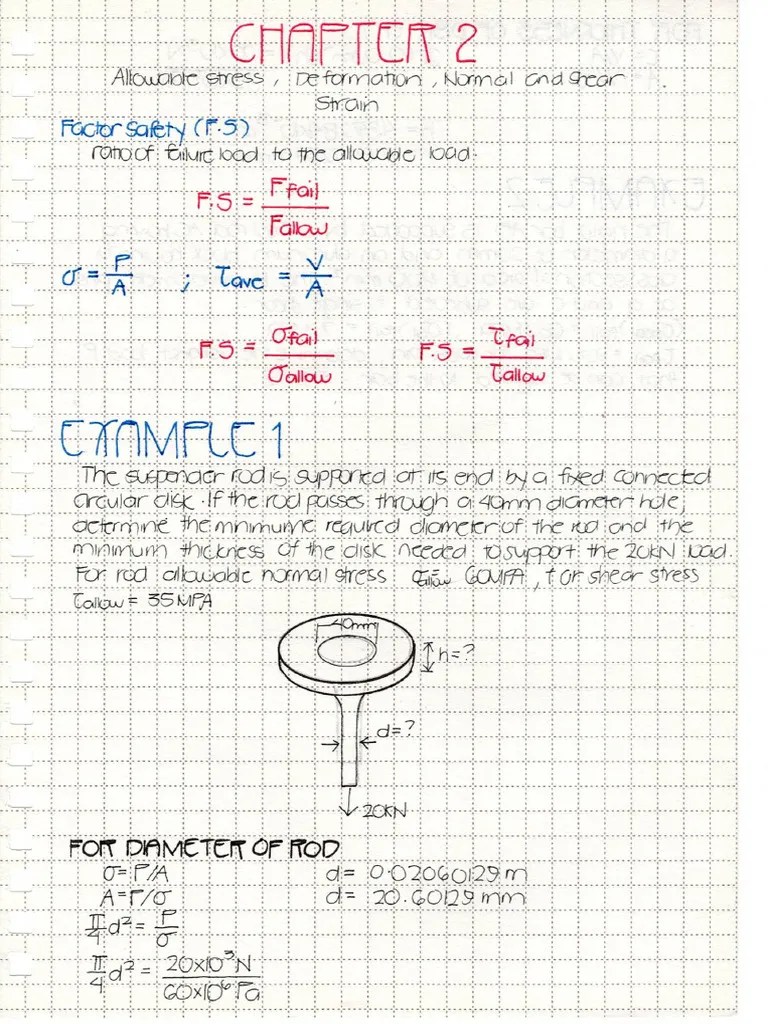 CHAPTER 2
Allowable stress, Deformation, Normal and Shear
Strain
Factor Safety (F.S)
ratio of failure load to the allowable load.
F.S = Ffail / Fallow
σ = P/A ; τave = V/A
F.S = σfail / σallow F.S = τfail / τallow
EXAMPLE 1
The suspender rod is supported at its end by a fixed connected
circular disk. If the rod passes through a 40mm diameter hole,
determine the mnimume required diameter of the rod and the
minimum thickness of the disk needed to support the 20kN load.
For rod allowable normal stress σallow = 60MPA, for shear stress
τallow = 35MPA
40mm
h=?
d=?
20KN
FOR DIAMETER OF ROD
σ=P/A d= 0.02060129m
A=P/σ d= 20.60129mm
π/4 d² = P/σ
π/4 d² = 20x10³N / 60x10⁶Pa